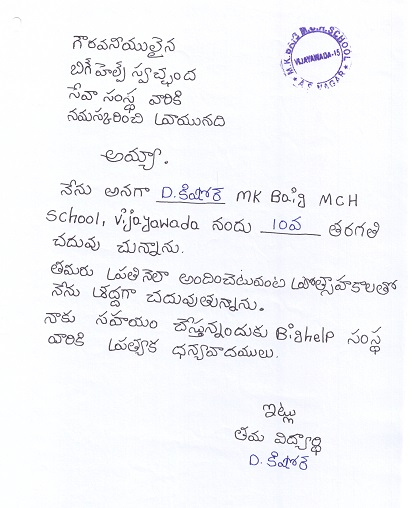 గౌరవనీయులైన
బిగ్‌హెల్ప్ స్వచ్ఛంద
సేవా సంస్థ వారికి
నమస్కరించి వ్రాయునది
M.K. BAIG M.C.H. SCHOOL
VIJAYAWADA-15
★ A.P. NAGAR ★
అయ్యా.
నేను అనగా D.కిషోర్ MK Baig MCH
School, Vijayawada నందు 10వ తరగతి
చదువు చున్నాను.
తమరు ప్రతినెలా అందించెటువంటి ప్రోత్సాహకాలతో
నేను శ్రద్దగా చదువుతున్నాను.
నాకు సహాయం చేస్తున్నందుకు Bighelp సంస్థ
వారికి ప్రత్యేక ధన్యవాదములు.
ఇట్లు
తమ విద్యార్థి
D. కిషోర్